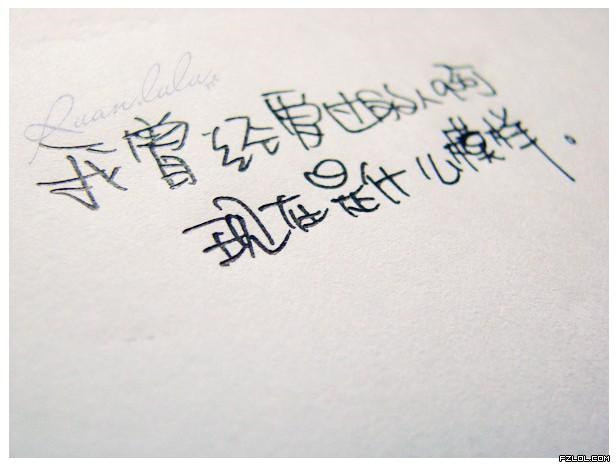 Ruan.lulu
我曾经爱过的人啊
现在是什么模样。
PZLOL.COM